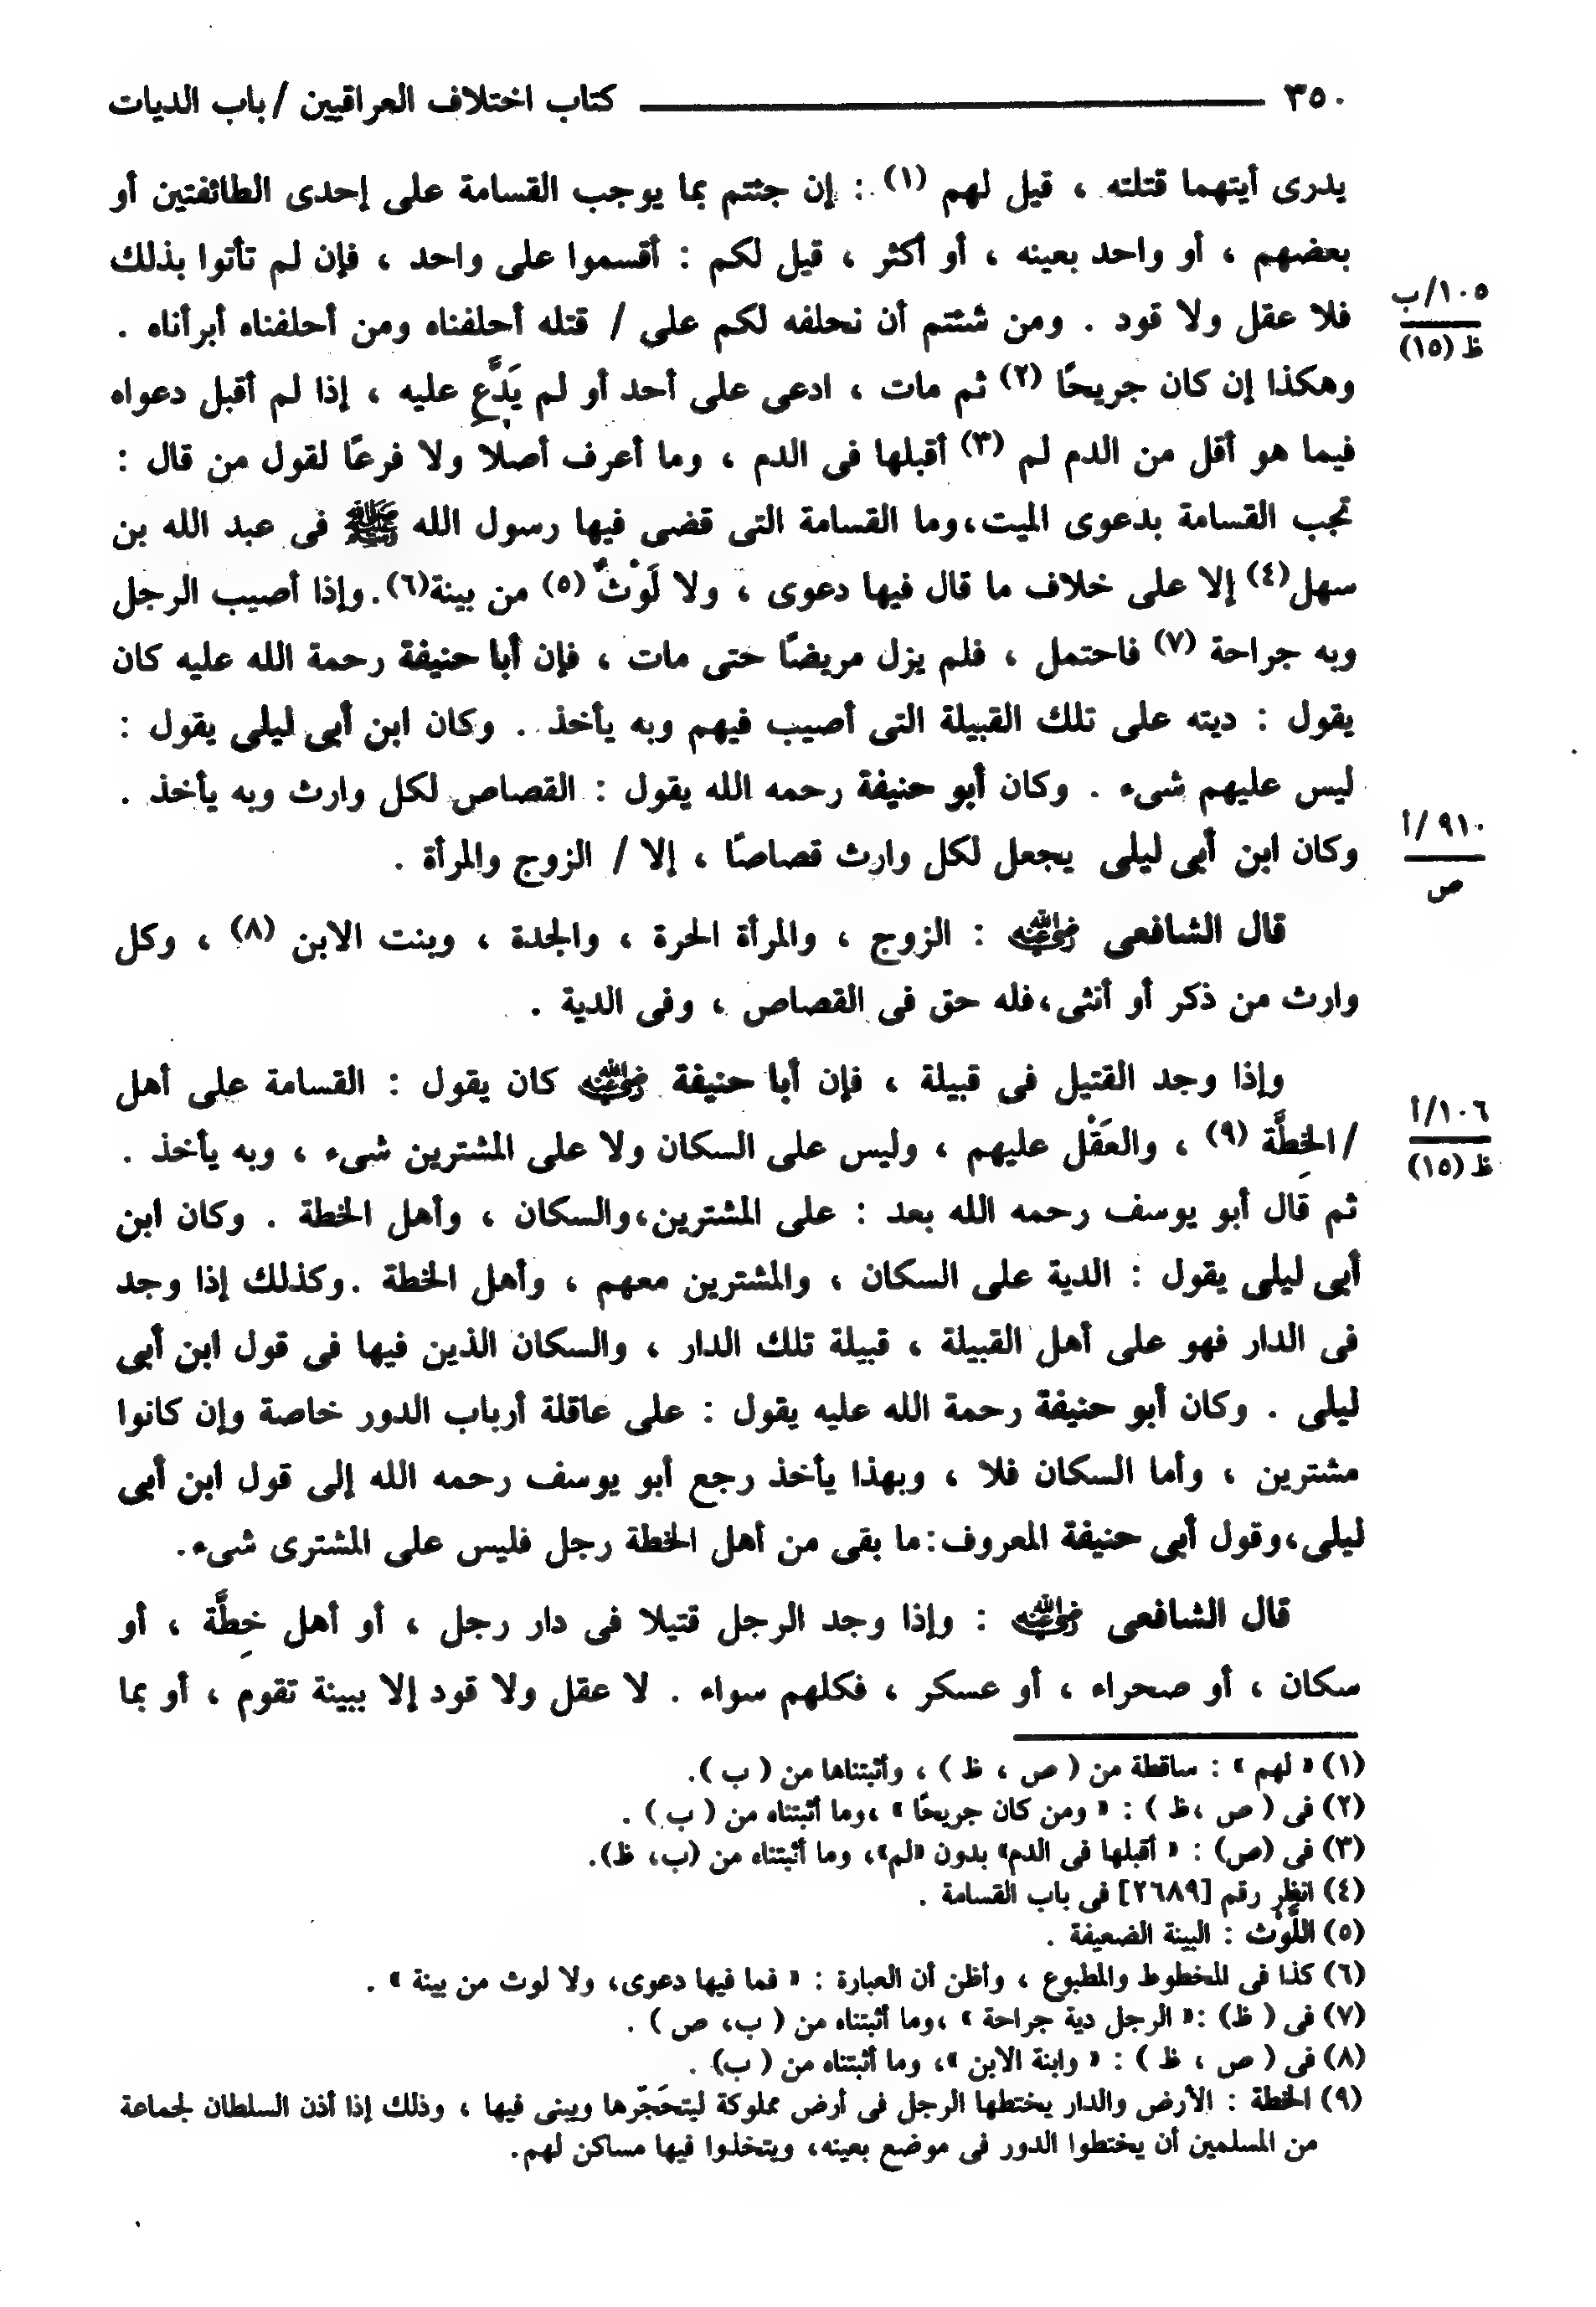 ٣٥٠ ــــــــــــــــــــــــــــــــ كتاب اختلاف العراقيين / باب الديات
يدرى أيتهما قتلته ، قيل لهم (١) : إن جئتم بما يوجب القسامة على إحدى الطائفتين أو
بعضهم ، أو واحد بعينه ، أو أكثر ، قيل لكم : أقسموا على واحد ، فإن لم تأتوا بذلك
فلا عقل ولا قود . ومن شئتم أن نحلفه لكم على / قتله أحلفناه ومن أحلفناه أبرأناه .
١٠٥/ب
ظ (١٥)
وهكذا إن كان جريحًا (٢) ثم مات ، ادعى على أحد أو لم يَدَّعِ عليه ، إذا لم أقبل دعواه
فيما هو أقل من الدم لم (٣) أقبلها فى الدم ، وما أعرف أصلا ولا فرعًا لقول من قال :
تجب القسامة بدعوى الميت،وما القسامة التى قضى فيها رسول الله ﷺ فى عبد الله بن
سهل(٤) إلا على خلاف ما قال فيها دعوى ، ولا لَوْثٌ (٥) من بينة(٦).وإذا أصيب الرجل
وبه جراحة (٧) فاحتمل ، فلم يزل مريضًا حتى مات ، فإن أبا حنيفة رحمة الله عليه كان
يقول : ديته على تلك القبيلة التى أصيب فيهم وبه يأخذ . وكان ابن أبى ليلى يقول :
ليس عليهم شىء . وكان أبو حنيفة رحمه الله يقول : القصاص لكل وارث وبه يأخذ .
وكان ابن أبى ليلى يجعل لكل وارث قصاصًا ، إلا / الزوج والمرأة .
٩١٠/أ
ص
قال الشافعى رضي الله عنه : الزوج ، والمرأة الحرة ، والجدة ، وبنت الابن (٨) ، وكل
وارث من ذكر أو أنثى،فله حق فى القصاص ، وفى الدية .
وإذا وجد القتيل فى قبيلة ، فإن أبا حنيفة رضي الله عنه كان يقول : القسامة على أهل
/الخِطَّة (٩) ، والعَقْل عليهم ، وليس على السكان ولا على المشترين شىء ، وبه يأخذ .
١٠٦/أ
ظ (١٥)
ثم قال أبو يوسف رحمه الله بعد : على المشترين،والسكان ، وأهل الخطة . وكان ابن
أبى ليلى يقول : الدية على السكان ، والمشترين معهم ، وأهل الخطة .وكذلك إذا وجد
فى الدار فهو على أهل القبيلة ، قبيلة تلك الدار ، والسكان الذين فيها فى قول ابن أبى
ليلى . وكان أبو حنيفة رحمة الله عليه يقول : على عاقلة أرباب الدور خاصة وإن كانوا
مشترين ، وأما السكان فلا ، وبهذا يأخذ رجع أبو يوسف رحمه الله إلى قول ابن أبى
ليلى،وقول أبى حنيفة المعروف:ما بقى من أهل الخطة رجل فليس على المشترى شىء.
قال الشافعى رضي الله عنه : وإذا وجد الرجل قتيلا فى دار رجل ، أو أهل خِطَّة ، أو
سكان ، أو صحراء ، أو عسكر ، فكلهم سواء . لا عقل ولا قود إلا ببينة تقوم ، أو بما
(١) « لهم » : ساقطة من ( ص ، ظ ) ، وأثبتناها من ( ب ).
(٢) فى ( ص ،ظ ) : « ومن كان جريحًا » ،وما أثبتناه من ( ب ) .
(٣) فى (ص) : « أقبلها فى الدم» بدون «لم»، وما أثبتناه من (ب، ظ).
(٤) انظر رقم [٢٦٨٩] فى باب القسامة .
(٥) اللَّوْث : البينة الضعيفة .
(٦) كذا فى المخطوط والمطبوع ، وأظن أن العبارة : « فما فيها دعوى، ولا لوث من بينة » .
(٧) فى ( ظ) :« الرجل دية جراحة » ،وما أثبتناه من ( ب، ص ) .
(٨) فى ( ص ، ظ ) : « وابنة الابن »، وما أثبتناه من ( ب) .
(٩) الخطة : الأرض والدار يختطها الرجل فى أرض مملوكة ليتحَجّرها ويبنى فيها ، وذلك إذا أذن السلطان لجماعة
من المسلمين أن يختطوا الدور فى موضع بعينه، ويتخذوا فيها مساكن لهم.